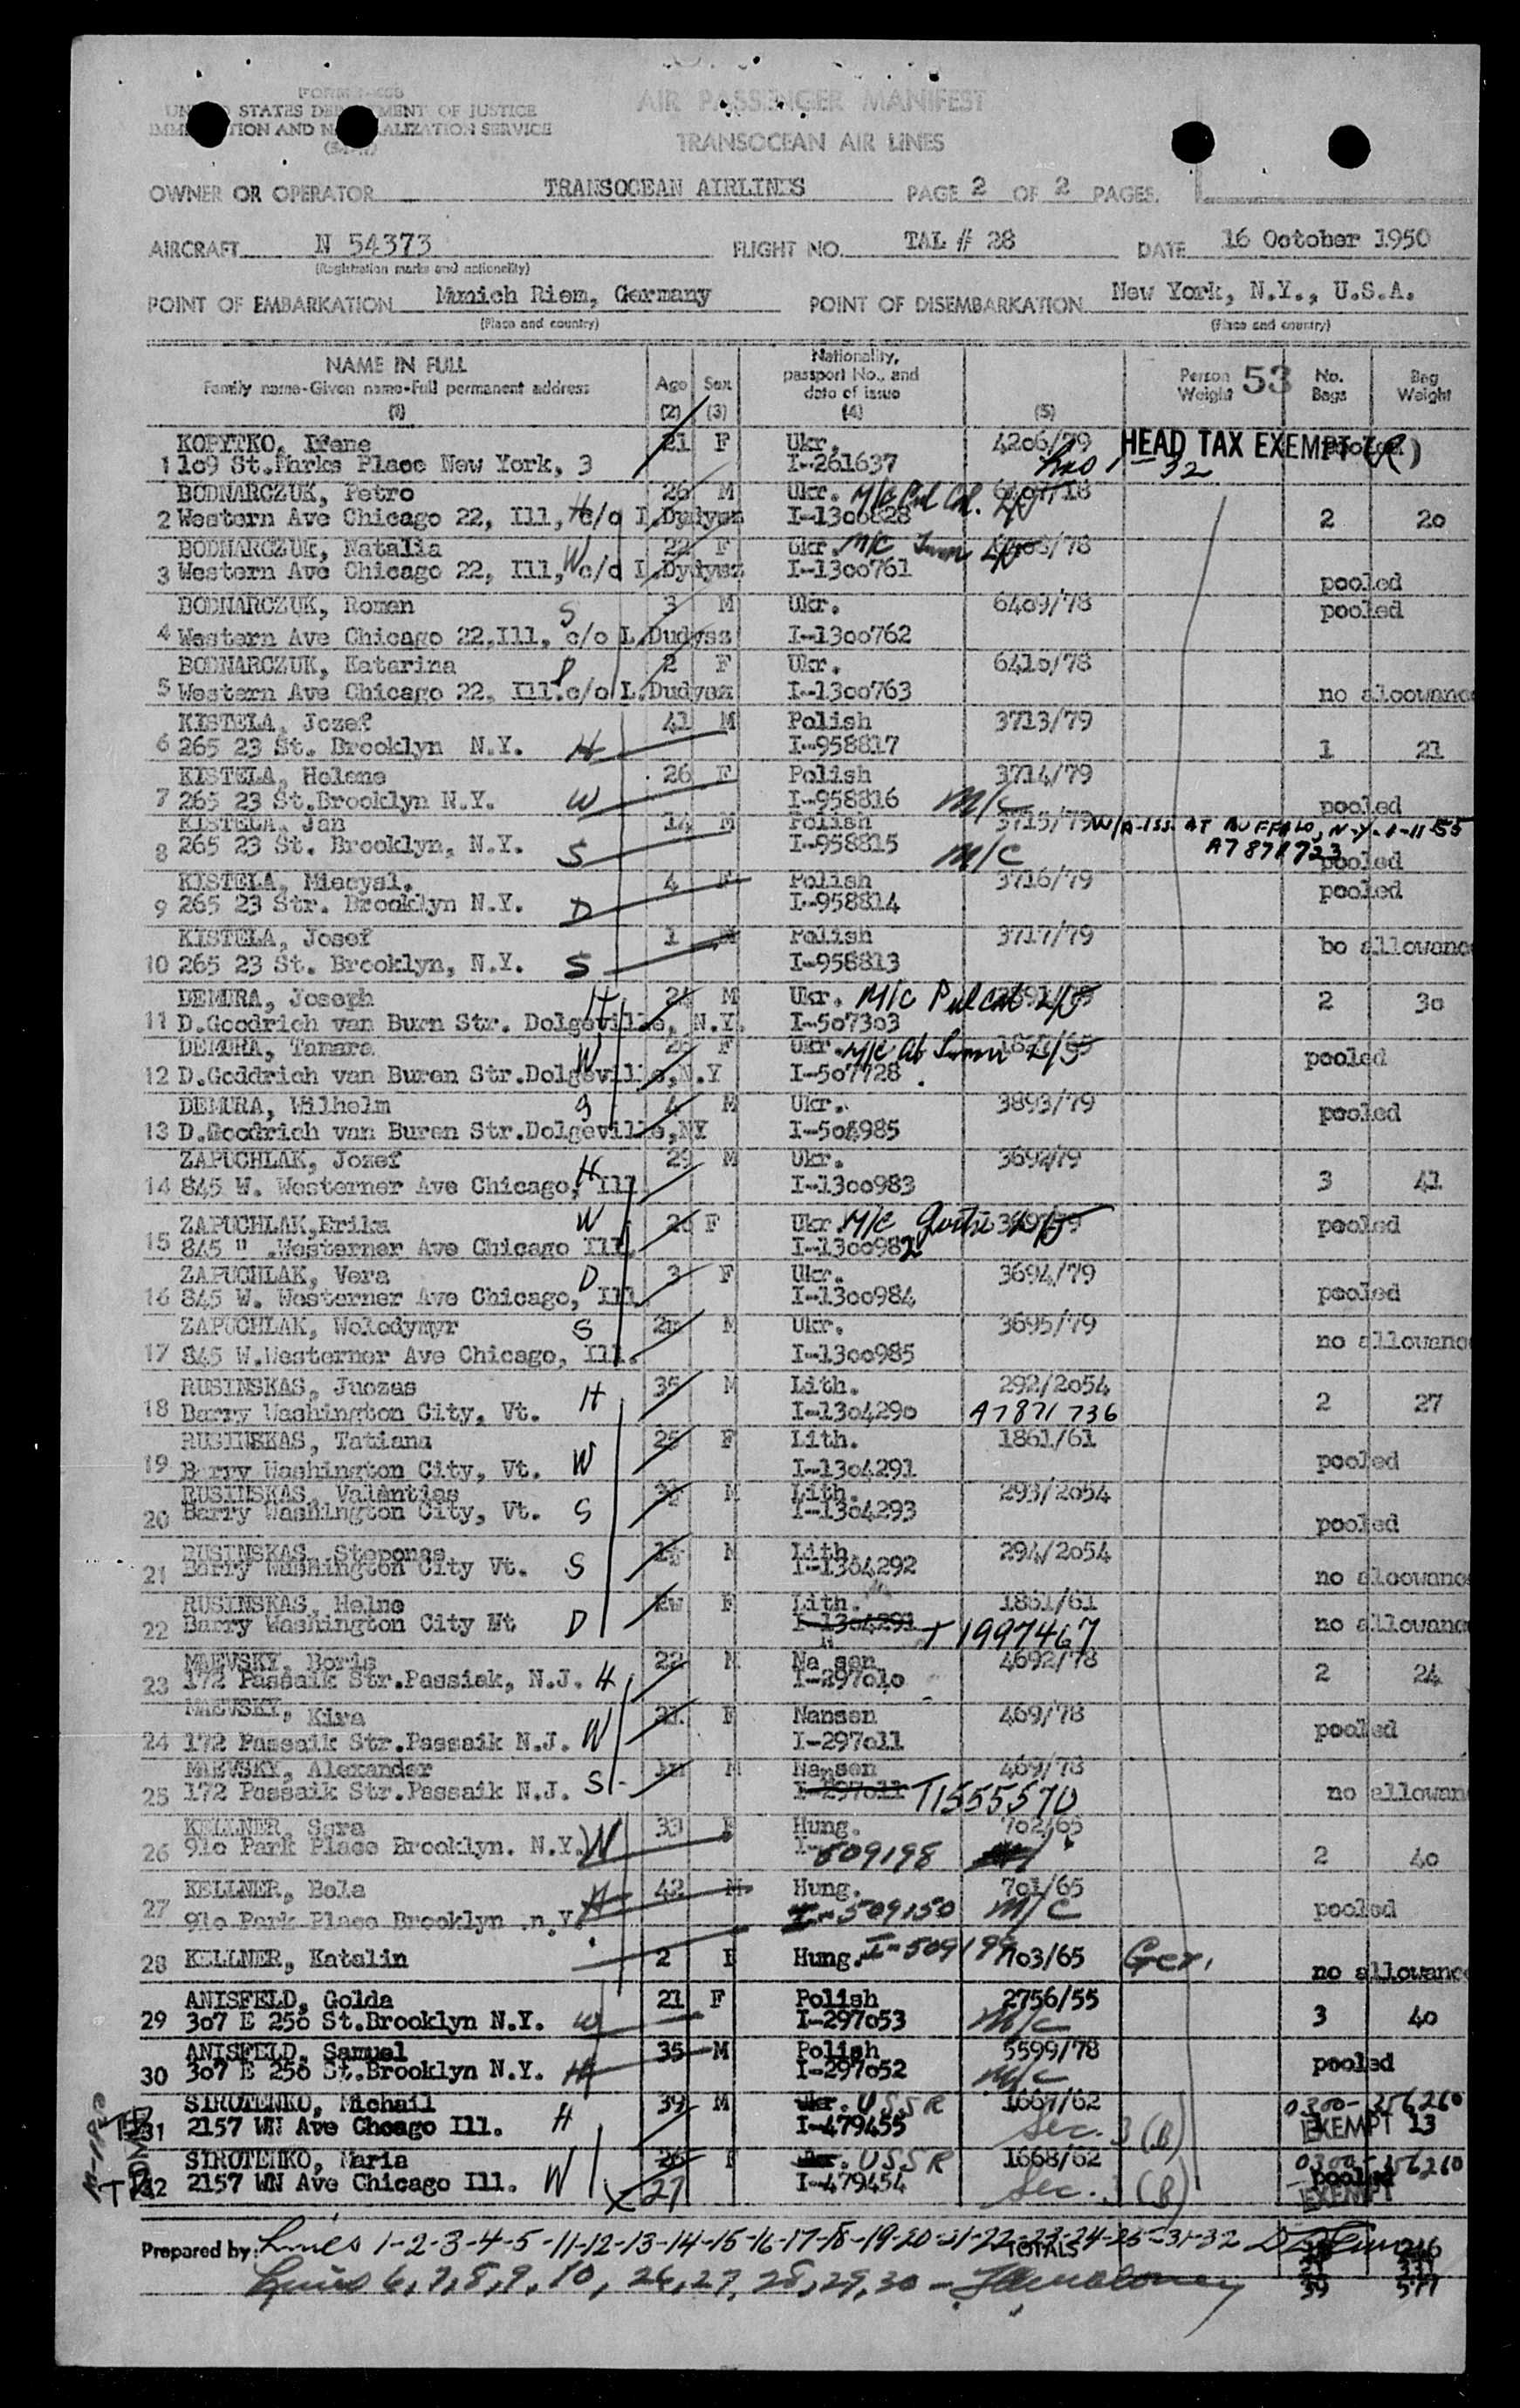 UNITED STATES DEPARTMENT OF JUSTICE
IMMIGRATION AND NATURALIZATION SERVICE
AIR PASSENGER MANIFEST
TRANSOCEAN AIR LINES
OWNER OR OPERATOR TRANSOCEAN AIRLINES PAGE 2 OF 2 PAGES.
AIRCRAFT N 54373 FLIGHT NO. TAL # 28 DATE 16 October 1950
(Registration marks and nationality)
POINT OF EMBARKATION Munich Riem, Germany POINT OF DISEMBARKATION New York, N.Y., U.S.A.
(Place and country) (Place and country)
NAME IN FULL
Family name-Given name-Full permanent address
(1)
Age
(2)
Sex
(3)
Nationality,
passport No., and
date of issue
(4)
(5)
Person
Weight
53
No.
Bags
Bag
Weight
KOPYTKO, Irene 21 F Ukr. 4206/79 HEAD TAX EXEMPT (R)
1 109 St.Marks Place New York, 3 I-261637 32
BODNARCZUK, Petro 26 M Ukr. M/C
2 Western Ave Chicago 22, Ill, H c/o I.Dudysz I-1306828 2 20
BODNARCZUK, Natalia 22 F Ukr. M/C
3 Western Ave Chicago 22, Ill, W c/o I.Dydysz I-1300761 pooled
BODNARCZUK, Roman S 3 M Ukr. 6409/78 pooled
4 Western Ave Chicago 22.Ill, c/o L.Dudysz I-1300762
BODNARCZUK, Katarina D 2 F Ukr. 6410/78
5 Western Ave Chicago 22, Ill.c/o L.Dudysz I-1300763 no aloowance
KISTELA, Jozef 41 M Polish 3713/79
6 265 23 St. Brooklyn N.Y. H I-958817 1 21
KISTELA, Helene 26 F Polish 3714/79
7 265 23 St.Brooklyn N.Y. W I-958816 M/C pooled
KISTELA, Jan 14 M Polish 3715/79 W/A-ISS. AT BUFFALO, N-Y-1-11-55
8 265 23 St. Brooklyn, N.Y. S I-958815 M/C A7 871 723 pooled
KISTELA, Miecysl. 4 F Polish 3716/79 pooled
9 265 23 Str. Brooklyn N.Y. D I-958814
KISTELA, Josef 1 M Polish 3717/79 bo allowance
10 265 23 St. Brooklyn, N.Y. S I-958813
DEMURA, Joseph H M Ukr. M/C 2 30
11 D.Goodrich van Burn Str. Dolgeville, N.Y. I-507303
DEMURA, Tamara W 26 F Ukr. M/C pooled
12 D.Goddrich van Buren Str.Dolgeville,N.Y I-507728
DEMURA, Wilhelm S 4 M Ukr. 3893/79 pooled
13 D.Goodrich van Buren Str.Dolgeville,NY I-504985
ZAPUCHLAK, Jozef H 29 M Ukr. 3692/79
14 845 W. Westerner Ave Chicago, Ill I-1300983 3 41
ZAPUCHLAK,Erika W F Ukr. M/C pooled
15 845 " .Westerner Ave Chicago Ill. I-1300982
ZAPUCHLAK, Vera D 3 F Ukr. 3694/79
16 845 W. Westerner Ave Chicago, Ill. I-1300984 pooled
ZAPUCHLAK, Wolodymyr S 2m M Ukr. 3695/79 no allowance
17 845 W.Westerner Ave Chicago, Ill. I-1300985
RUSINSKAS, Juozas H 35 M Lith. 292/2054
18 Barry Washington City, Vt. I-1304290 A7871736 2 27
RUSINSKAS, Tatiana 25 F Lith. 1861/61
19 Barry Washington City, Vt. W I-1304291 pooled
RUSINSKAS, Valentias M Lith. 293/2054
20 Barry Washington City, Vt. S I-1304293 pooled
RUSINSKAS, Steponas M Lith. 294/2054
21 Barry Washington City Vt. S I-1304292 no aloowance
RUSINSKAS, Helne F Lith. 1861/61
22 Barry Washington City Mt D I-1304291 T1997467 no allowance
MAEVSKY, Boris 22 M Na sen 4692/78
23 172 Passaik Str.Passiak, N.J. H I-297010 2 24
MAEVSKY, Kira 21 F Nansen 469/78
24 172 Passaik Str.Passaik N.J. W I-297011 pooled
MAEVSKY, Alexander M Nansen 469/78
25 172 Passaik Str.Passaik N.J. S I-297011 T1555570 no allowance
KELLNER, Sara 33 F Hung. 702/65
26 910 Park Place Brooklyn. N.Y. W I-509198 2 40
KELLNER, Bela H 42 M Hung. 701/65
27 910 Park Place Brooklyn .n.Y. I-509150 M/C pooled
28 KELLNER, Katalin 2 F Hung. 703/65 Ger. no allowance
ANISFELD, Golda 21 F Polish 2756/55
29 307 E 256 St.Brooklyn N.Y. W I-297053 M/C 3 40
ANISFELD, Samuel 35 M Polish 5599/78
30 307 E 256 St.Brooklyn N.Y. H I-297052 M/C pooled
SIROTENKO, Michail 39 M Ukr. USSR 1667/62 0300-256260
31 2157 WN Ave Choago Ill. H I-479455 Sec. 3 (B) EXEMPT 13
SIROTENKO, Maria 26 F Ukr. USSR 1668/62 0300-256260
32 2157 WN Ave Chicago Ill. W X 27 I-479454 Sec. 3 (B) pooled EXEMPT
Prepared by: Lines 1-2-3-4-5-11-12-13-14-15-16-17-18-19-20-21-22-23-24-25-31-32
TOTALS
Lines 6, 7, 8, 9, 10, 26, 27, 28, 29, 30 -
39